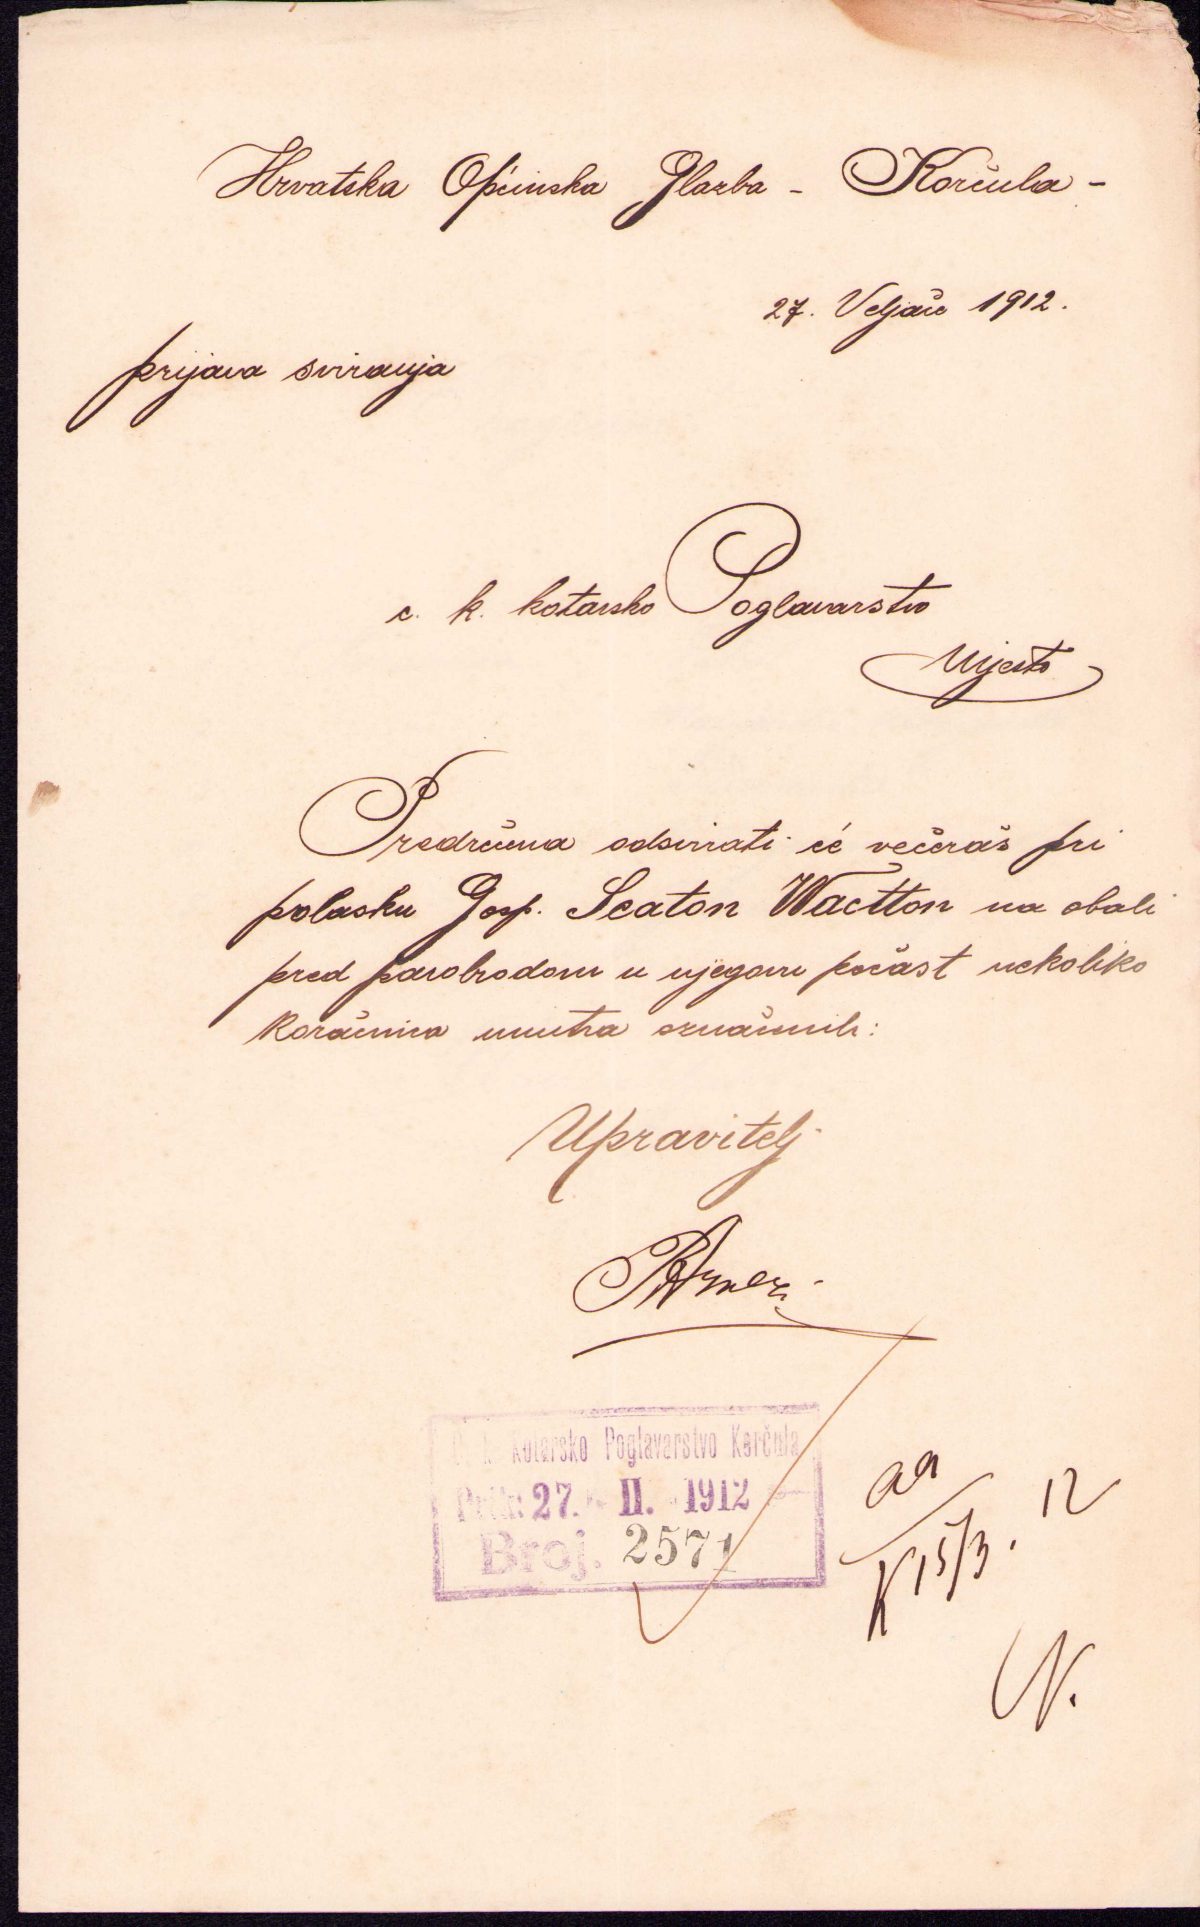 Hrvatska Općinska Glazba - Korčula -
27. Veljače 1912.
prijava sviranja
c. k. kotarsko Poglavarstvo
Mjesto
Predručena odsvirati će večeras pri
polasku Gosp. Seaton Wactton na obali
pred parobrodom u njegovu počast nekoliko
koračnica unutra označenih:
Upravitelj
C. k. Kotarsko Poglavarstvo Korčula
Prim: 27. II. 1912
Broj. 2571
aa
K 15/3. 12
N.